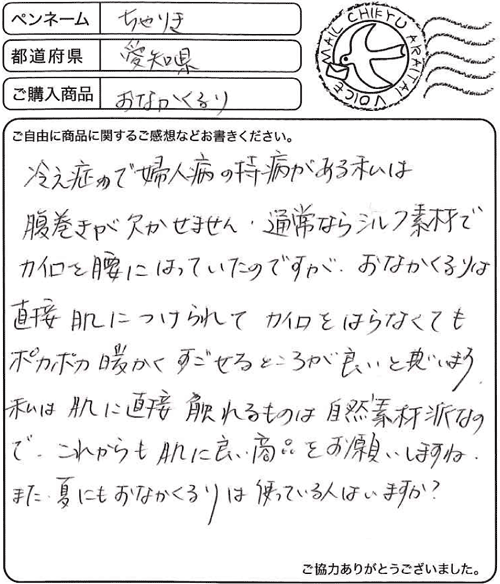 ペンネーム ちゃりき
都道府県 愛知県
ご購入商品 おなかくるり
MAIL CHIKYU ARAITAI VOICE
ご自由に商品に関するご感想などお書きください。
冷え症ので婦人病の持病がある私は
腹巻きが欠かせません。通常ならシルク素材で
カイロを腰にはっていたのですが、おなかくるりは
直接肌につけられてカイロをはらなくても
ポカポカ暖かくすごせるところが良いと思います。
私は肌に直接触れるものは自然素材派なの
で、これからも肌に良い商品をお願いしますね。
また、夏にもおなかくるりは使っている人はいますか？
ご協力ありがとうございました。